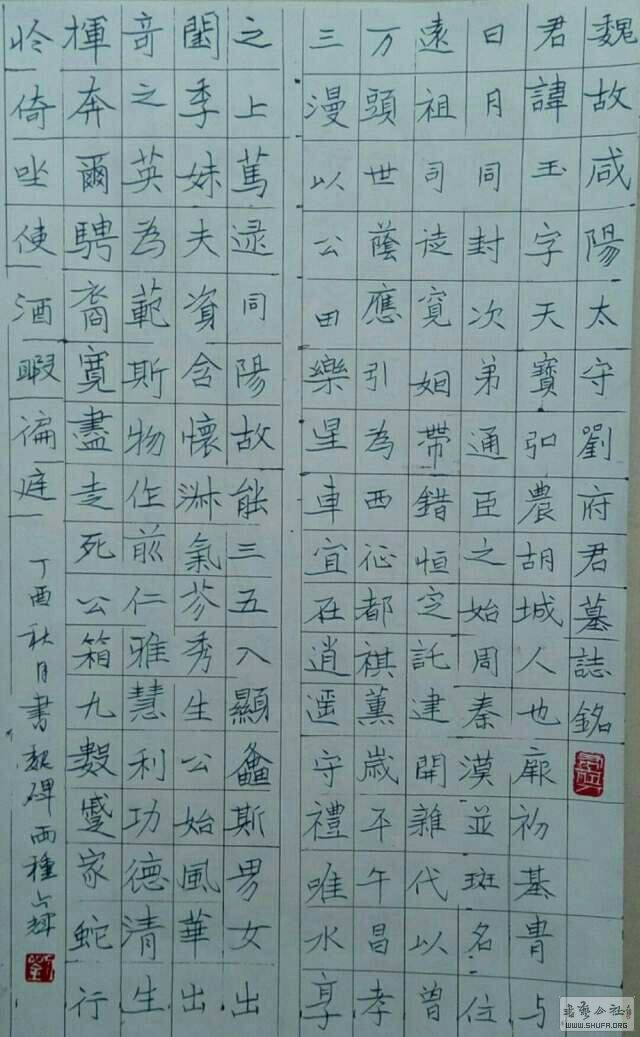 魏故咸陽太守劉府君墓誌銘
君諱玉字天寶弘農胡城人也厥初基胄与
日月同封次弟通臣之始周秦漢並班名位
遠祖司徒寬姻帶錯恒定託建開雜代以曾
万頭世蔭應引為西征都祺薫歲平午昌孝
三漫以公田樂星車宜在逍遥守禮唯水享
之上篤逯同陽故能三五入顯螽斯男女出
閨季妹夫資含懷淋氣芬秀生公始風華出
奇之英為範斯物作前仁雅慧利功德清生
揮奔爾騁裔寬盡走死公箱九數蹙家蛇行
倚坐使酒暇徧庭
丁酉秋月書魏碑兩種
書藝公社
WWW.SHUFA.ORG